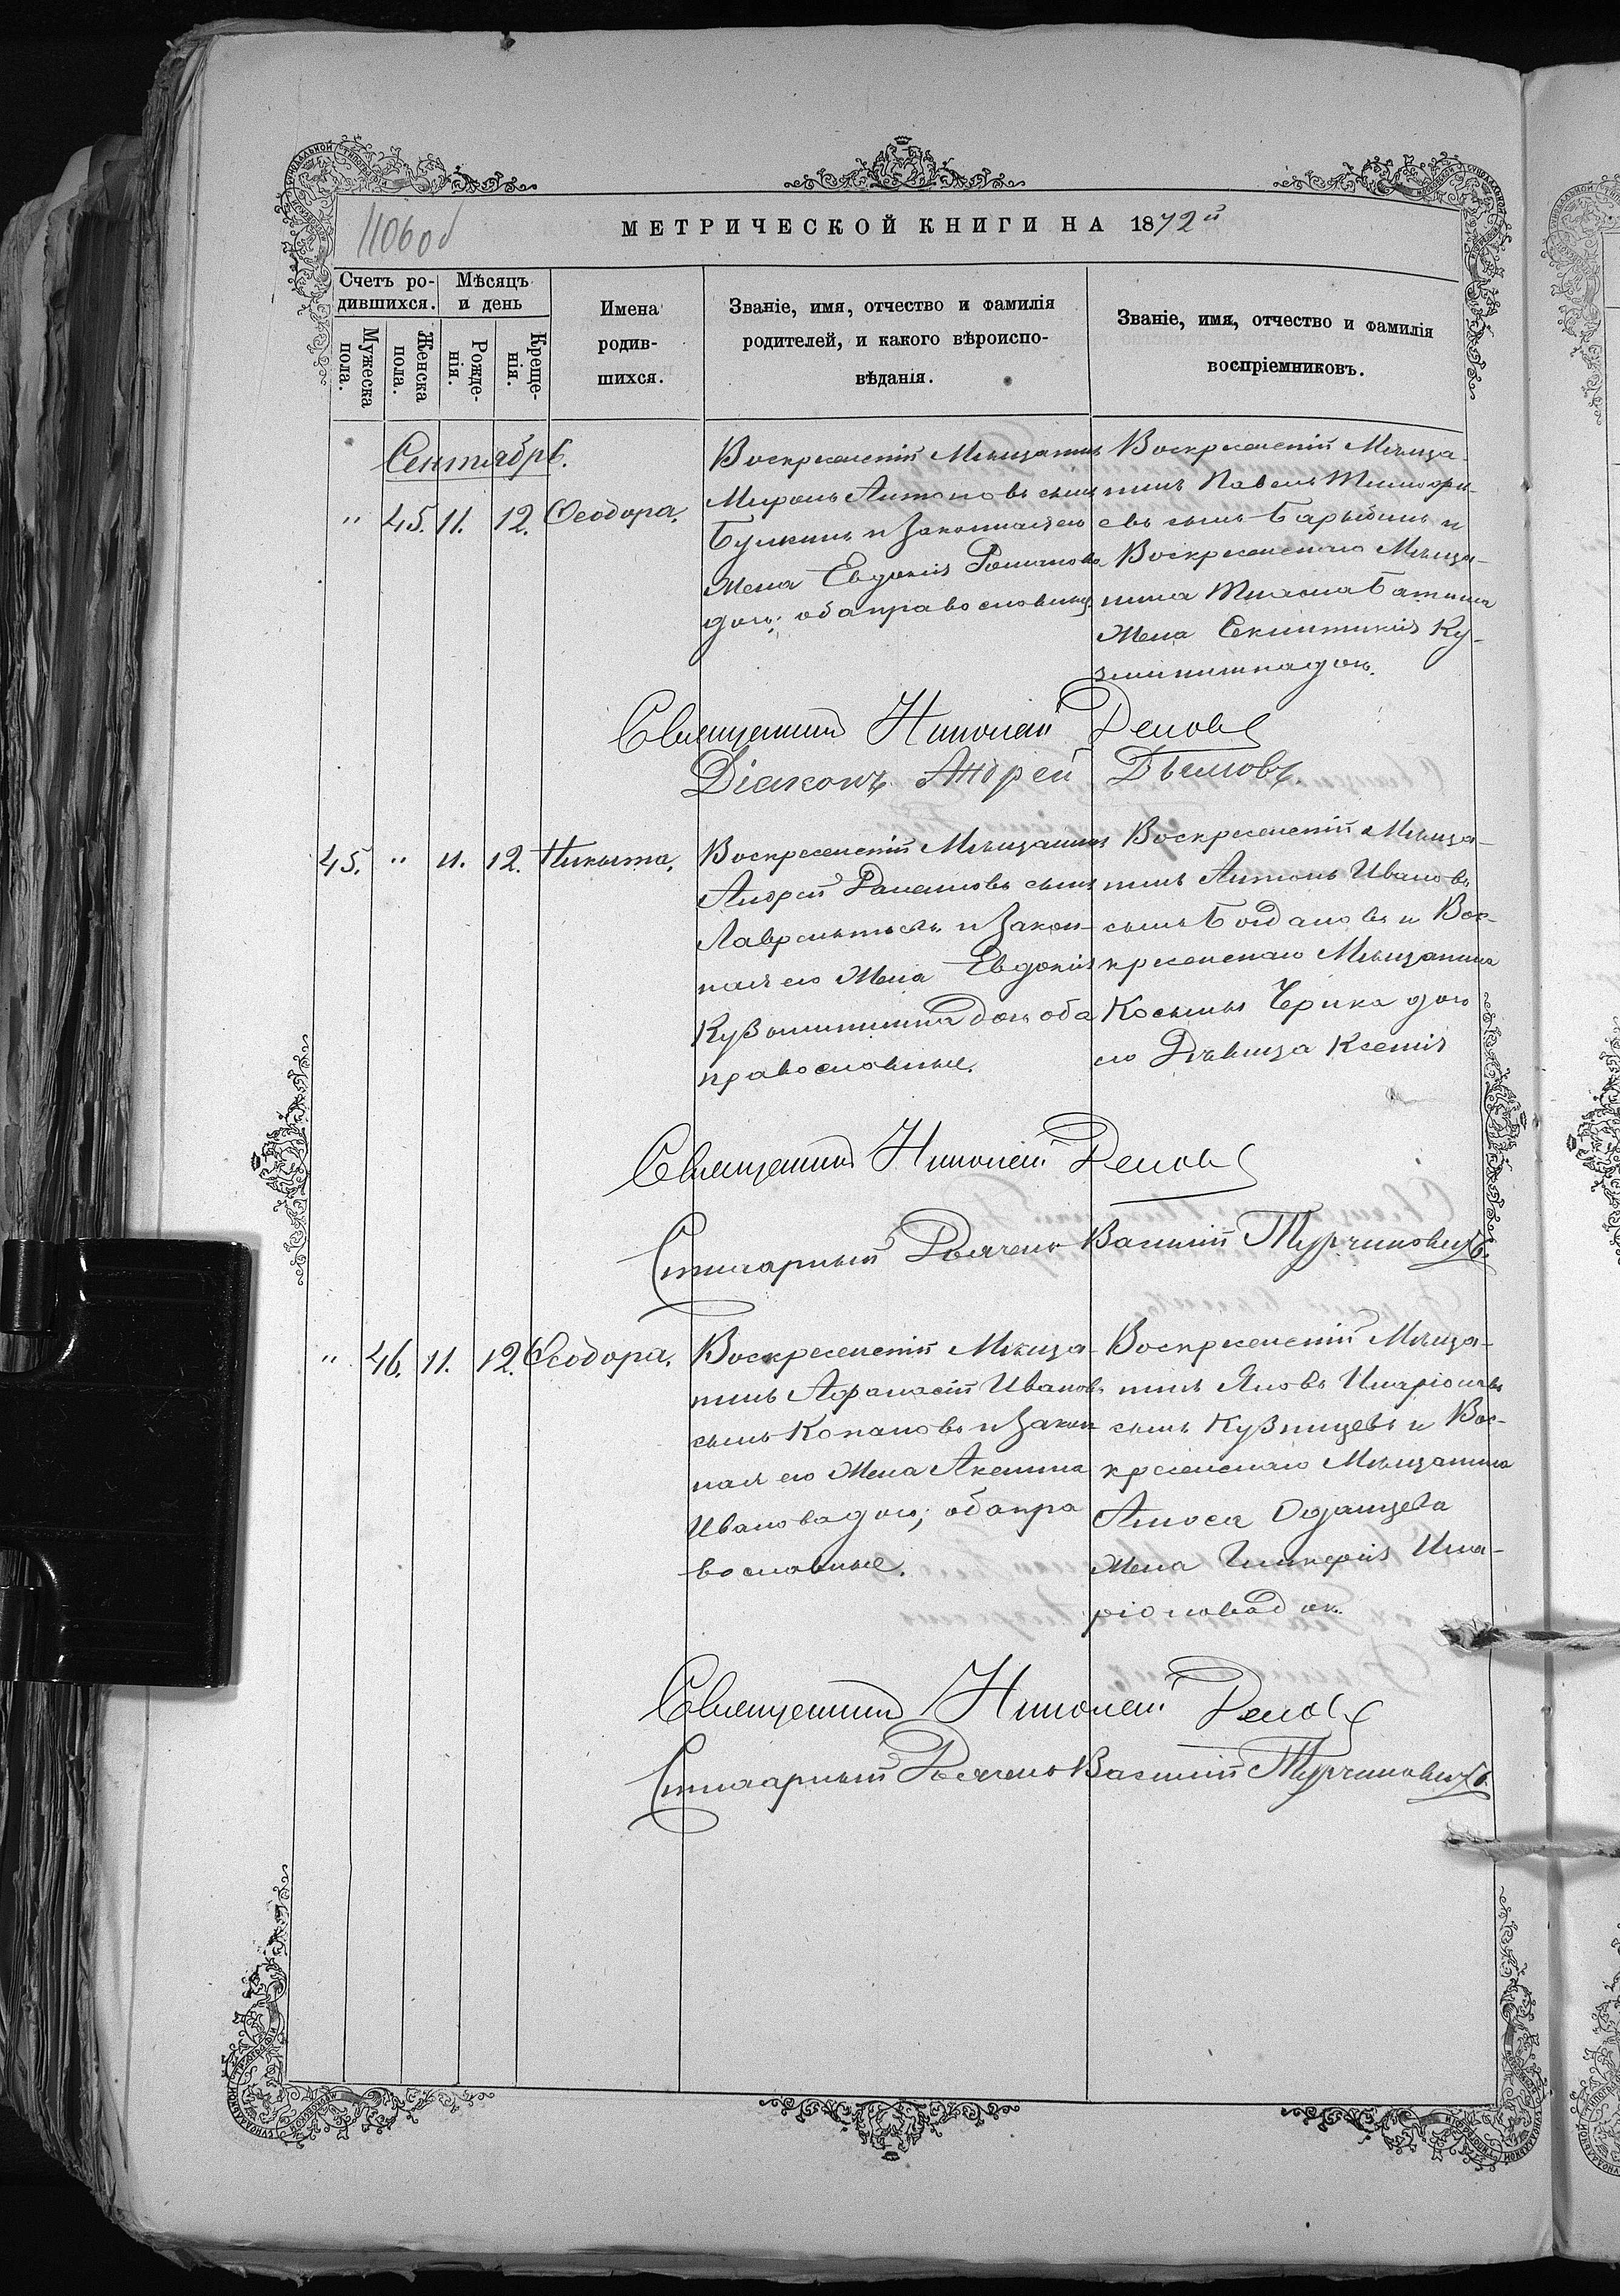 1106 об
МЕТРИЧЕСКОЙ КНИГИ НА 1872й
Счетъ родившихся.
Мѣсяцъ и день
Мужеска пола.
Женска пола.
Рожденія.
Крещенія.
Имена родившихся.
Званіе, имя, отчество и фамилія
родителей, и какого вѣроиспо-
вѣданія.
Званіе, имя, отчество и фамилія
воспріемниковъ.
Сентябрь.
" 45. 11. 12. Ѳеодора.
Воскресенскій Мѣщанинъ
Миронъ Антоновъ сынъ
Булкинъ и Законная его
Жена Евдокія Романова
дочь; оба православные
Воскресенскій Мѣща-
нинъ Павелъ Тимофе-
евъ сынъ Барыбинъ и
Воскресенскаго Мѣща-
нина
Жена Секлитикія Ку-
зминишна дочь.
Священникъ Николай
Діаконъ Андрей
45. " 11. 12. Никита.
Воскресенскій Мѣщанинъ
Андрей сынъ
Лаврентьевъ и Закон-
ная его Жена Евдокія
Кузминишна дочь оба
православные.
Воскресенскій Мѣща-
нинъ Антонъ Ивановъ
сынъ Богдановъ и Вос-
кресенскаго Мѣщанина
Косьмы дочь
его Дѣвица Ксенія
Священникъ Николай
Стихарный Дьячекъ Василій Турчиновичь.
" 46. 11. 12. Ѳеодора.
Воскресенскій Мѣща-
нинъ Афанасій Ивановъ
сынъ Копановъ и Закон-
ная его Жена Аксинья
Иванова дочь; оба пра
вославные.
Воскресенскій Мѣща-
нинъ Яковъ Иларіоновъ
сынъ Кузнецевъ и Вос-
кресенскаго Мѣщанина
Амоса Одянцева
Жена Гликерія Ила-
ріонова дочь.
Священникъ Николай
Стихарный Дьячекъ Василій Турчиновичь.